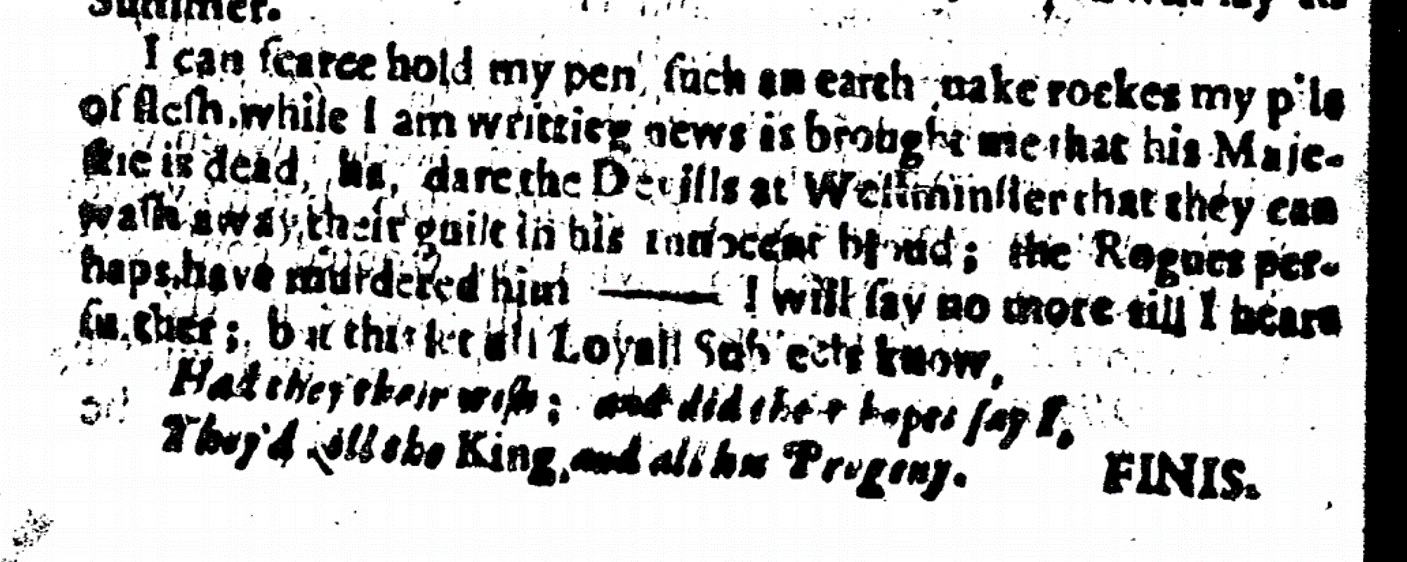 Summer.
I can ſcarce hold my pen, ſuch an earth quake rockes my pile
of fleſh, while I am writtieg news is brought me that his Maje-
ſtie is dead, ha, dare the Devills at Weſtminſter that they can
waſh away their guilt in his innocent bloud; the Rogues per-
haps have murdered him —— I will ſay no more till I heare
further; but this let all Loyall Subjects know,
Had they their wiſh; and did their hopes ſay I,
They'd kill the King, and all his Progeny.
FINIS.